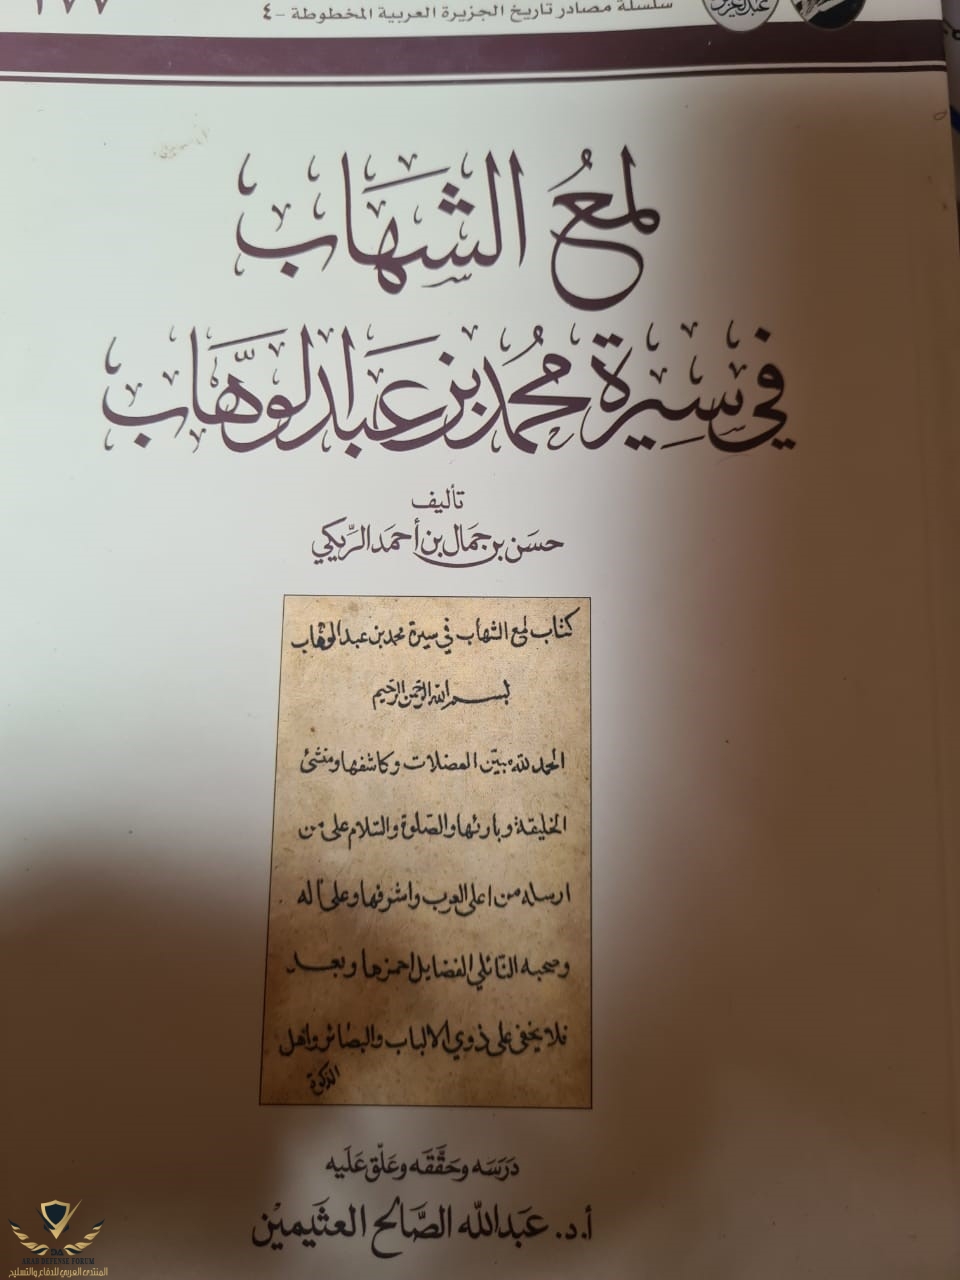 سلسلة مصادر تاريخ الجزيرة العربية المخطوطة -٤
لمعُ الشهاب
في سيرة محمد بن عبد الوهَّاب
تأليف
حسَن بن جمَال بن أحمَد الرِّيكي
كتاب لمع الشهاب في سيرة محمد بن عبد الوهاب
بسم الله الرحمن الرحيم
الحمد لله مبيّن المعضلات وكاشفها ومنشئ
الخليقة وبارئها والصلوة والسلام على من
ارسله من اعلى العرب واشرفها وعلى آله
وصحبه النائلي الفضايل احمزها وبعد
فلا يخفى على ذوي الالباب والبصائر واهل
الذكوة
دَرَسَه وحَقَّقَه وعَلّق عَلَيه
أ.د. عبَدالله الصَّالح العثيمين
ARAB DEFENSE FORUM
المنتدى العربي للدفاع والتسليح